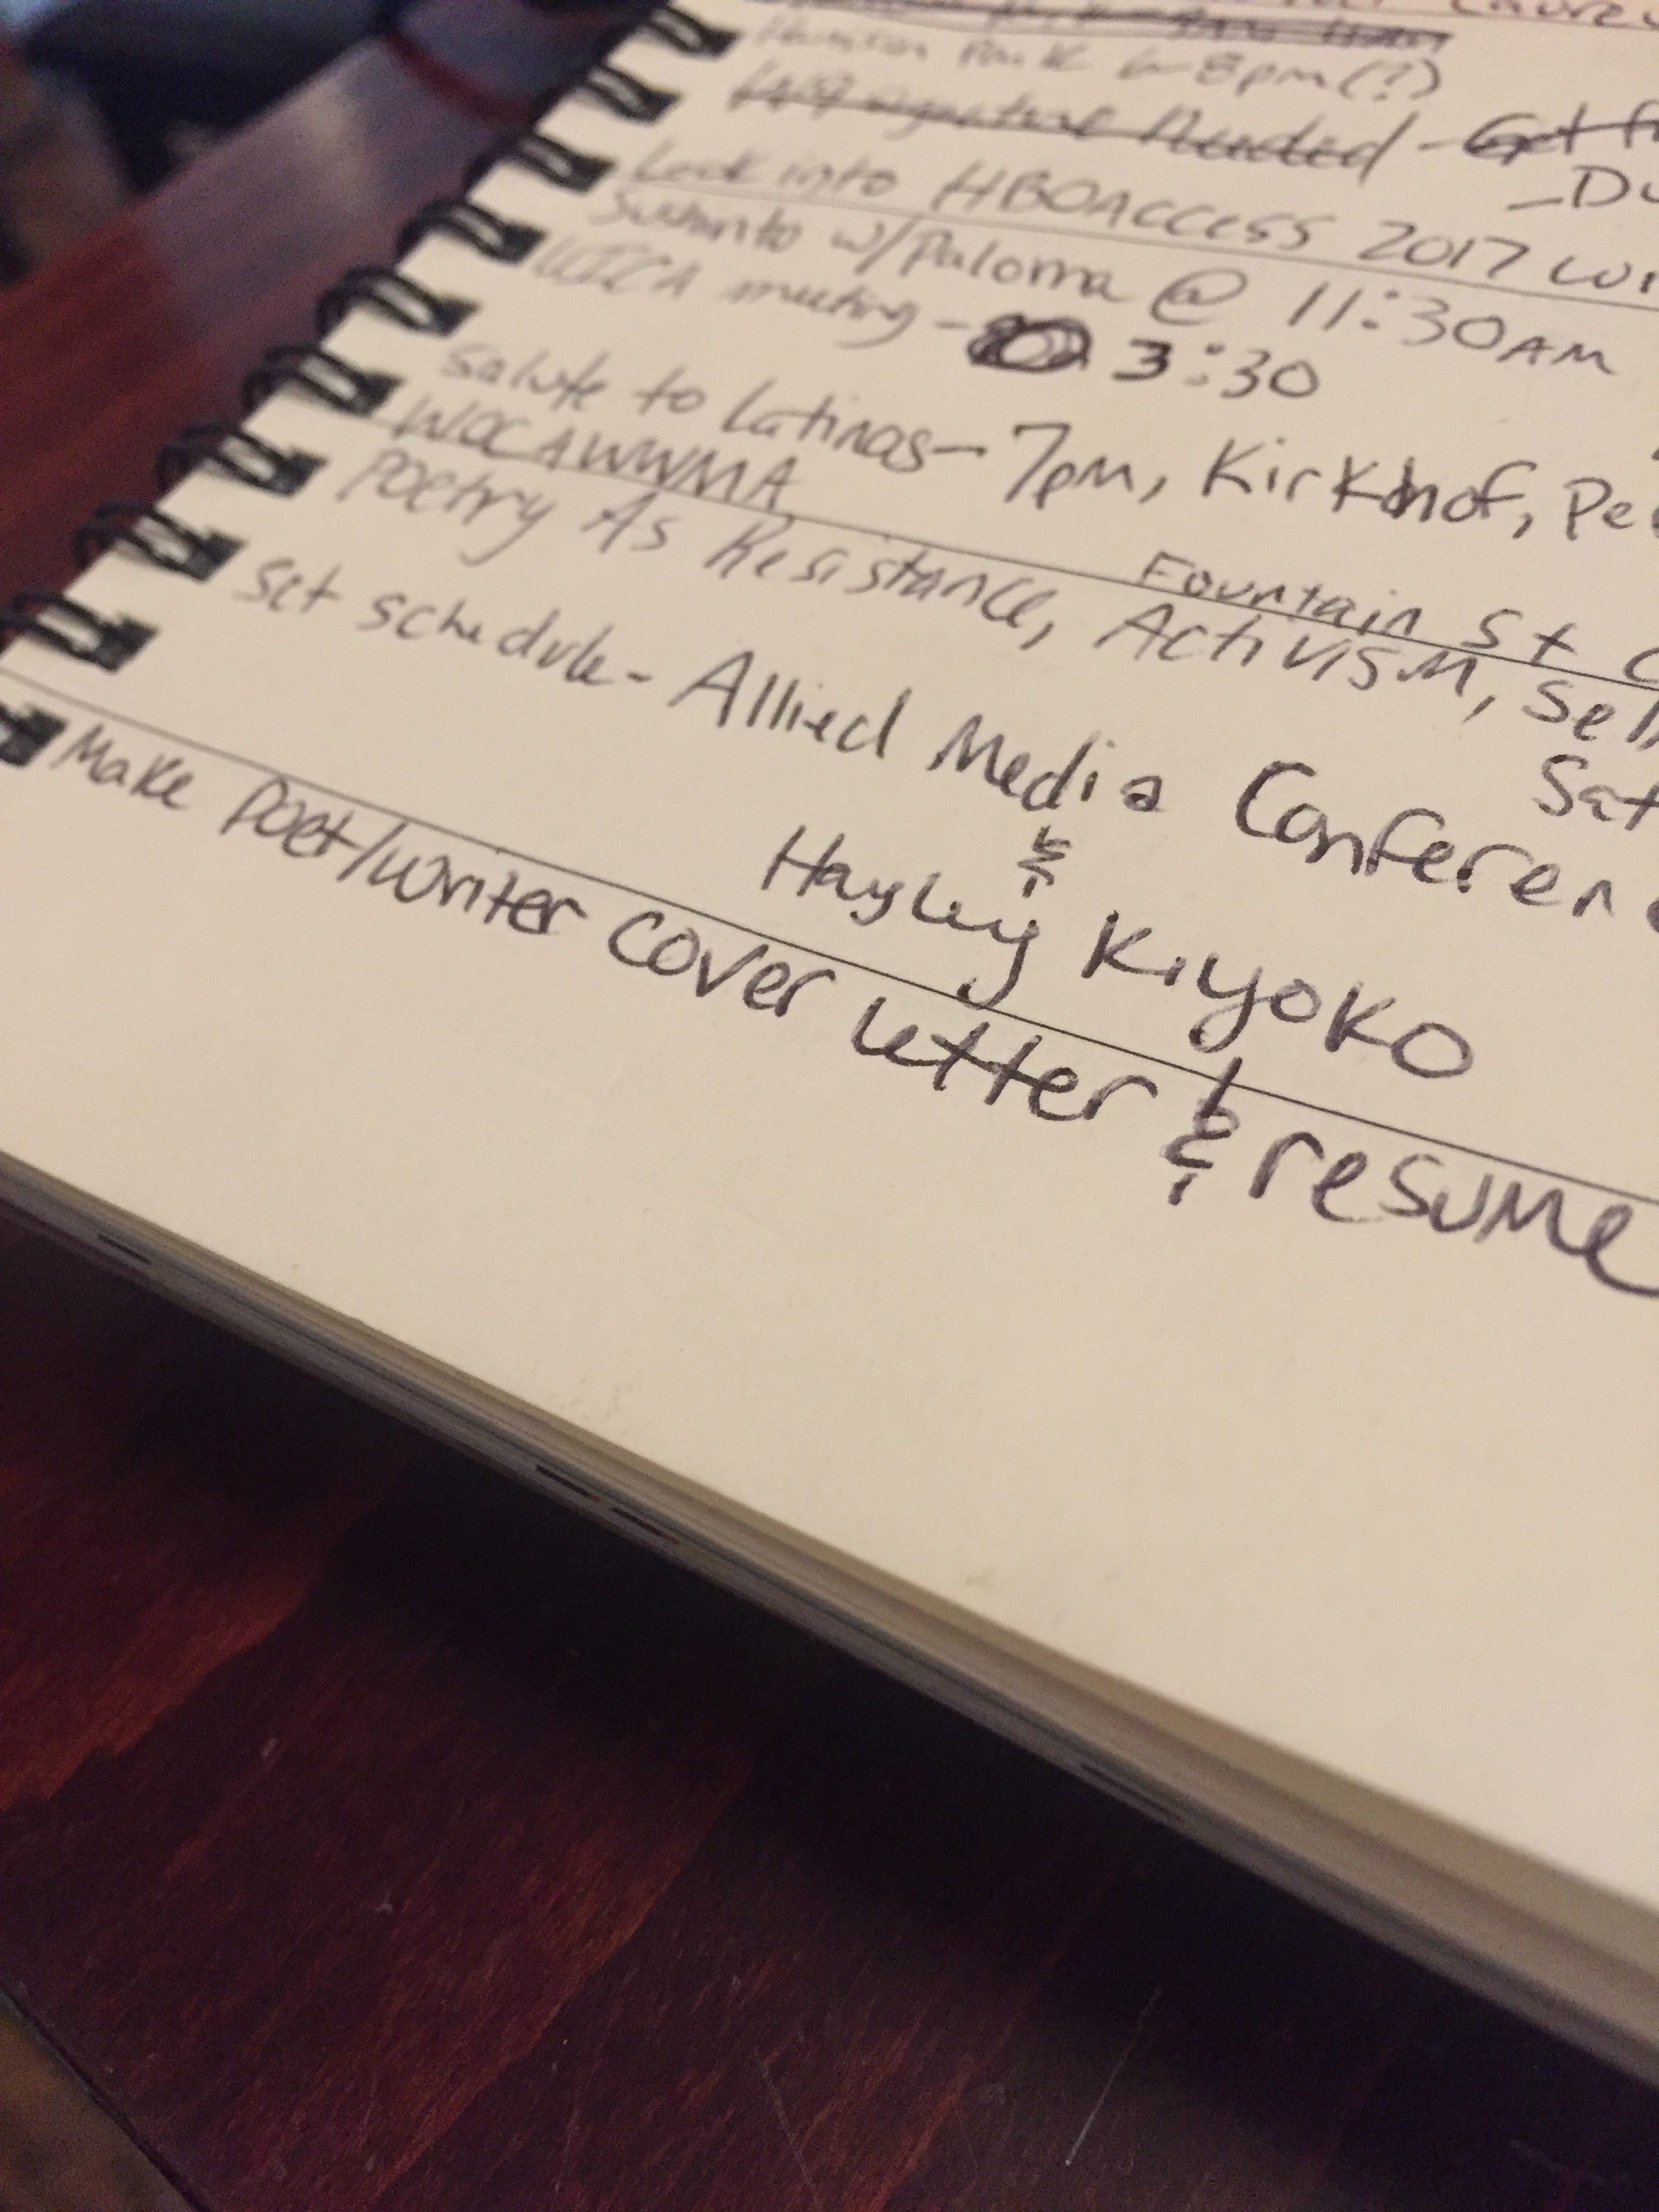 Park 6-8pm (?)
W9 signature Needed - Get
- Du
Look into HBOACCESS 2017 wri
w/Paloma @ 11:30AM
UICA meeting - 3:30
Salute to Latinas - 7pm, Kirkhof, Pe
WOCAWWMA
Fountain St C
Poetry As Resistance, Activism, Self
Sat
Set schedule - Allied Media Conferenc
&
Hayley Kiyoko
Make Poet/Writer cover letter & resume